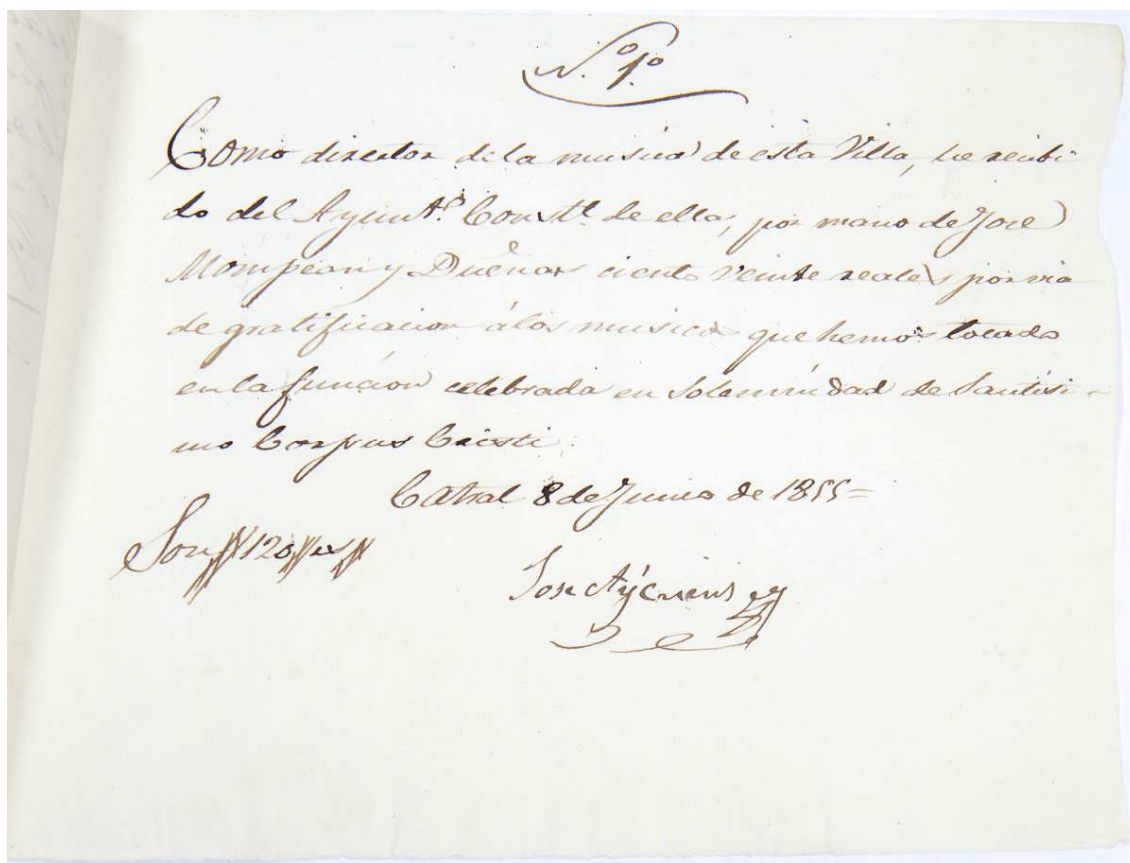 N. 1º
Como director de la musica de esta Villa, he recibi
do del Ayunt.º Const.l de ella, por mano de José
Mompean y Dueñas ciento veinte reales por via
de gratificacion á los musicos que hemos tocado
en la funcion celebrada en Solemnidad de Santisi-
mo Corpus Cristi.
Catral 8 de Junio de 1855=
Son 120 rs
Jose